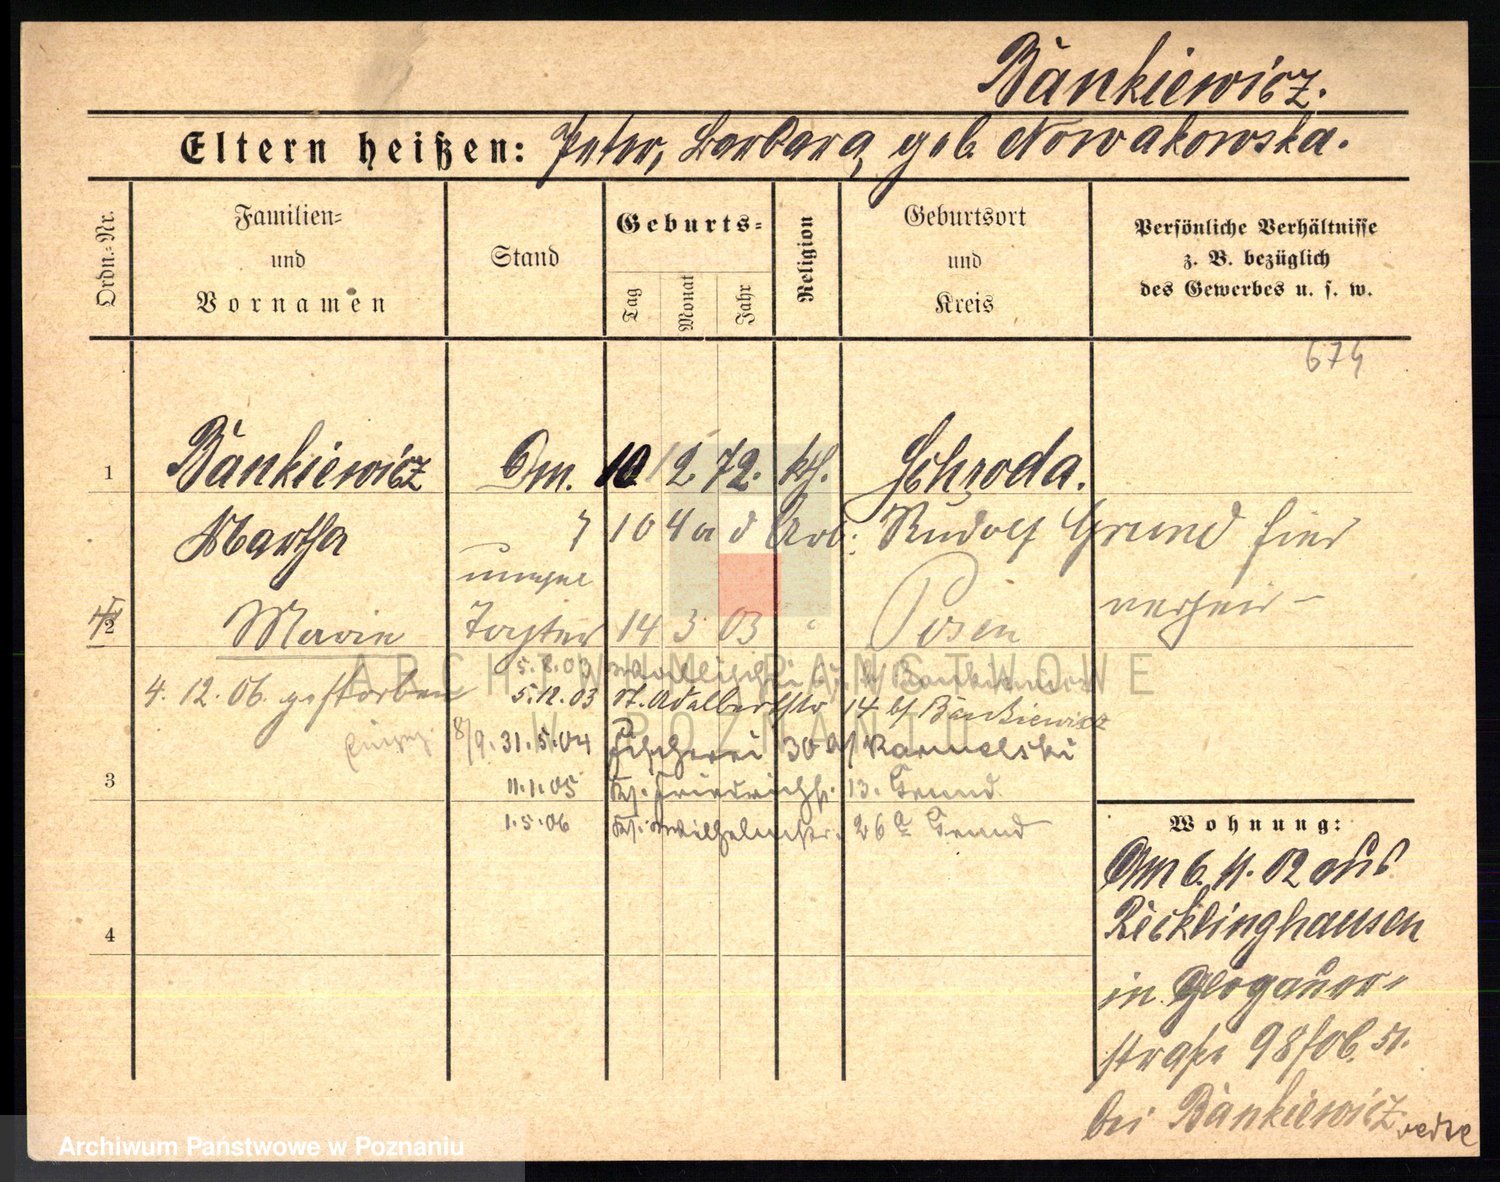 Bänkiewicz.
Eltern heißen: Peter, Barbara, geb. Nowakowska.
Ordn.-Nr.
Familien-
und
Vornamen
Stand
Geburts-
Tag
Monat
Jahr
Religion
Geburtsort
und
Kreis
Persönliche Verhältnisse
z. B. bezüglich
des Gewerbes u. s. w.
674
1 Bänkiewicz 10 12. 72. kth. Schroda.
Martha Arb. Rudolf Grund hier
unehel verheir
2 Marie Tochter 14 3 03 " Posen
4. 12. 06. gestorben
5.12.03 St. Adalbertstr 14 b/ Bänkiewicz
31.5.04 Fischerei 30
3 11.1.05 Friedrichstr. 13. Grund
1.5.06 Wilhelmstr. 26a Grund
4
Wohnung:
Am 6. 11. 02 aus
Recklinghausen
in Glogauer-
straße 98
bei Bänkiewicz
ARCHIWUM PAŃSTWOWE
W POZNANIU
Archiwum Państwowe w Poznaniu